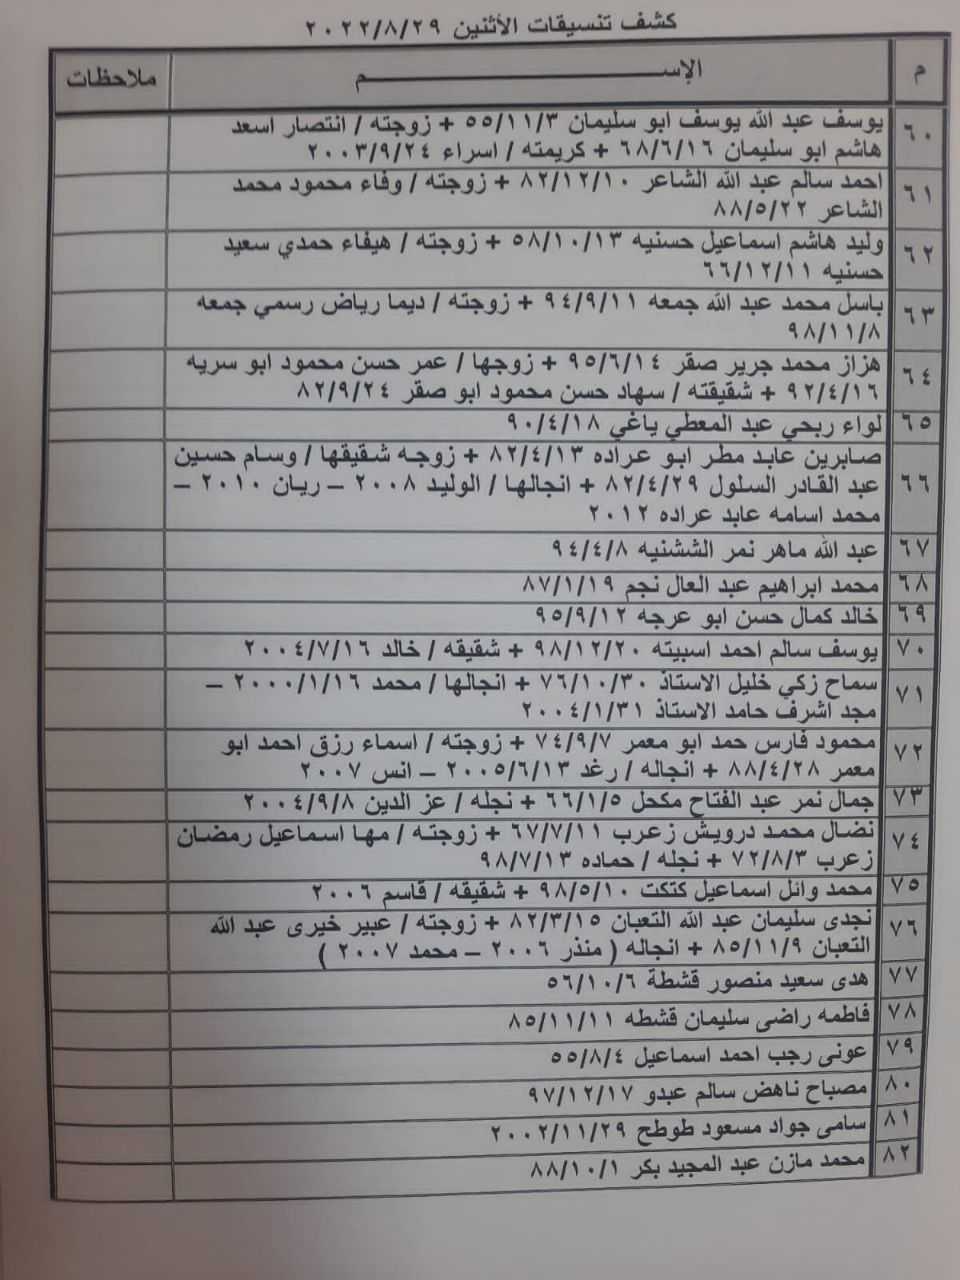 كشف تنسيقات الأثنين ٢٠٢٢/٨/٢٩
م الإســـــــــــــم ملاحظات
٦٠ يوسف عبد الله يوسف ابو سليمان ٥٥/١١/٣ + زوجته / انتصار اسعد
هاشم ابو سليمان ٦٨/٦/١٦ + كريمته / اسراء ٢٠٠٣/٩/٢٤
٦١ احمد سالم عبد الله الشاعر ٨٢/١٢/١٠ + زوجته / وفاء محمود محمد
الشاعر ٨٨/٥/٢٢
٦٢ وليد هاشم اسماعيل حسنيه ٥٨/١٠/١٣ + زوجته / هيفاء حمدي سعيد
حسنيه ٦٦/١٢/١١
٦٣ باسل محمد عبد الله جمعه ٩٤/٩/١١ + زوجته / ديما رياض رسمي جمعه
٩٨/١١/٨
٦٤ هزاز محمد جرير صقر ٩٥/٦/١٤ + زوجها / عمر حسن محمود ابو سريه
٩٢/٤/١٦ + شقيقته / سهاد حسن محمود ابو صقر ٨٢/٩/٢٤
٦٥ لواء ربحي عبد المعطي ياغي ٩٠/٤/١٨
٦٦ صابرين عابد مطر ابو عراده ٨٢/٤/١٣ + زوجه شقيقها / وسام حسين
عبد القادر السلول ٨٢/٤/٢٩ + انجالها / الوليد ٢٠٠٨ – ريان ٢٠١٠ –
محمد اسامه عابد عراده ٢٠١٢
٦٧ عبد الله ماهر نمر الششنيه ٩٤/٤/٨
٦٨ محمد ابراهيم عبد العال نجم ٨٧/١/١٩
٦٩ خالد كمال حسن ابو عرجه ٩٥/٩/١٢
٧٠ يوسف سالم احمد اسبيته ٩٨/١٢/٢٠ + شقيقه / خالد ٢٠٠٤/٧/١٦
٧١ سماح زكي خليل الاستاذ ٧٦/١٠/٣٠ + انجالها / محمد ٢٠٠٠/١/١٦ –
مجد اشرف حامد الاستاذ ٢٠٠٤/١/٣١
٧٢ محمود فارس حمد ابو معمر ٧٤/٩/٧ + زوجته / اسماء رزق احمد ابو
معمر ٨٨/٤/٢٨ + انجاله / رغد ٢٠٠٥/٦/١٣ – انس ٢٠٠٧
٧٣ جمال نمر عبد الفتاح مكحل ٦٦/١/٥ + نجله / عز الدين ٢٠٠٤/٩/٨
٧٤ نضال محمد درويش زعرب ٦٧/٧/١١ + زوجته / مها اسماعيل رمضان
زعرب ٧٢/٨/٣ + نجله / حماده ٩٨/٧/١٣
٧٥ محمد وائل اسماعيل كتكت ٩٨/٥/١٠ + شقيقه / قاسم ٢٠٠٦
٧٦ نجدى سليمان عبد الله التعبان ٨٢/٣/١٥ + زوجته / عبير خيرى عبد الله
التعبان ٨٥/١١/٩ + انجاله ( منذر ٢٠٠٦ – محمد ٢٠٠٧ )
٧٧ هدى سعيد منصور قشطة ٥٦/١٠/٦
٧٨ فاطمه راضى سليمان قشطه ٨٥/١١/١١
٧٩ عونى رجب احمد اسماعيل ٥٥/٨/٤
٨٠ مصباح ناهض سالم عبدو ٩٧/١٢/١٧
٨١ سامى جواد مسعود طوطح ٢٠٠٢/١١/٢٩
٨٢ محمد مازن عبد المجيد بكر ٨٨/١٠/١